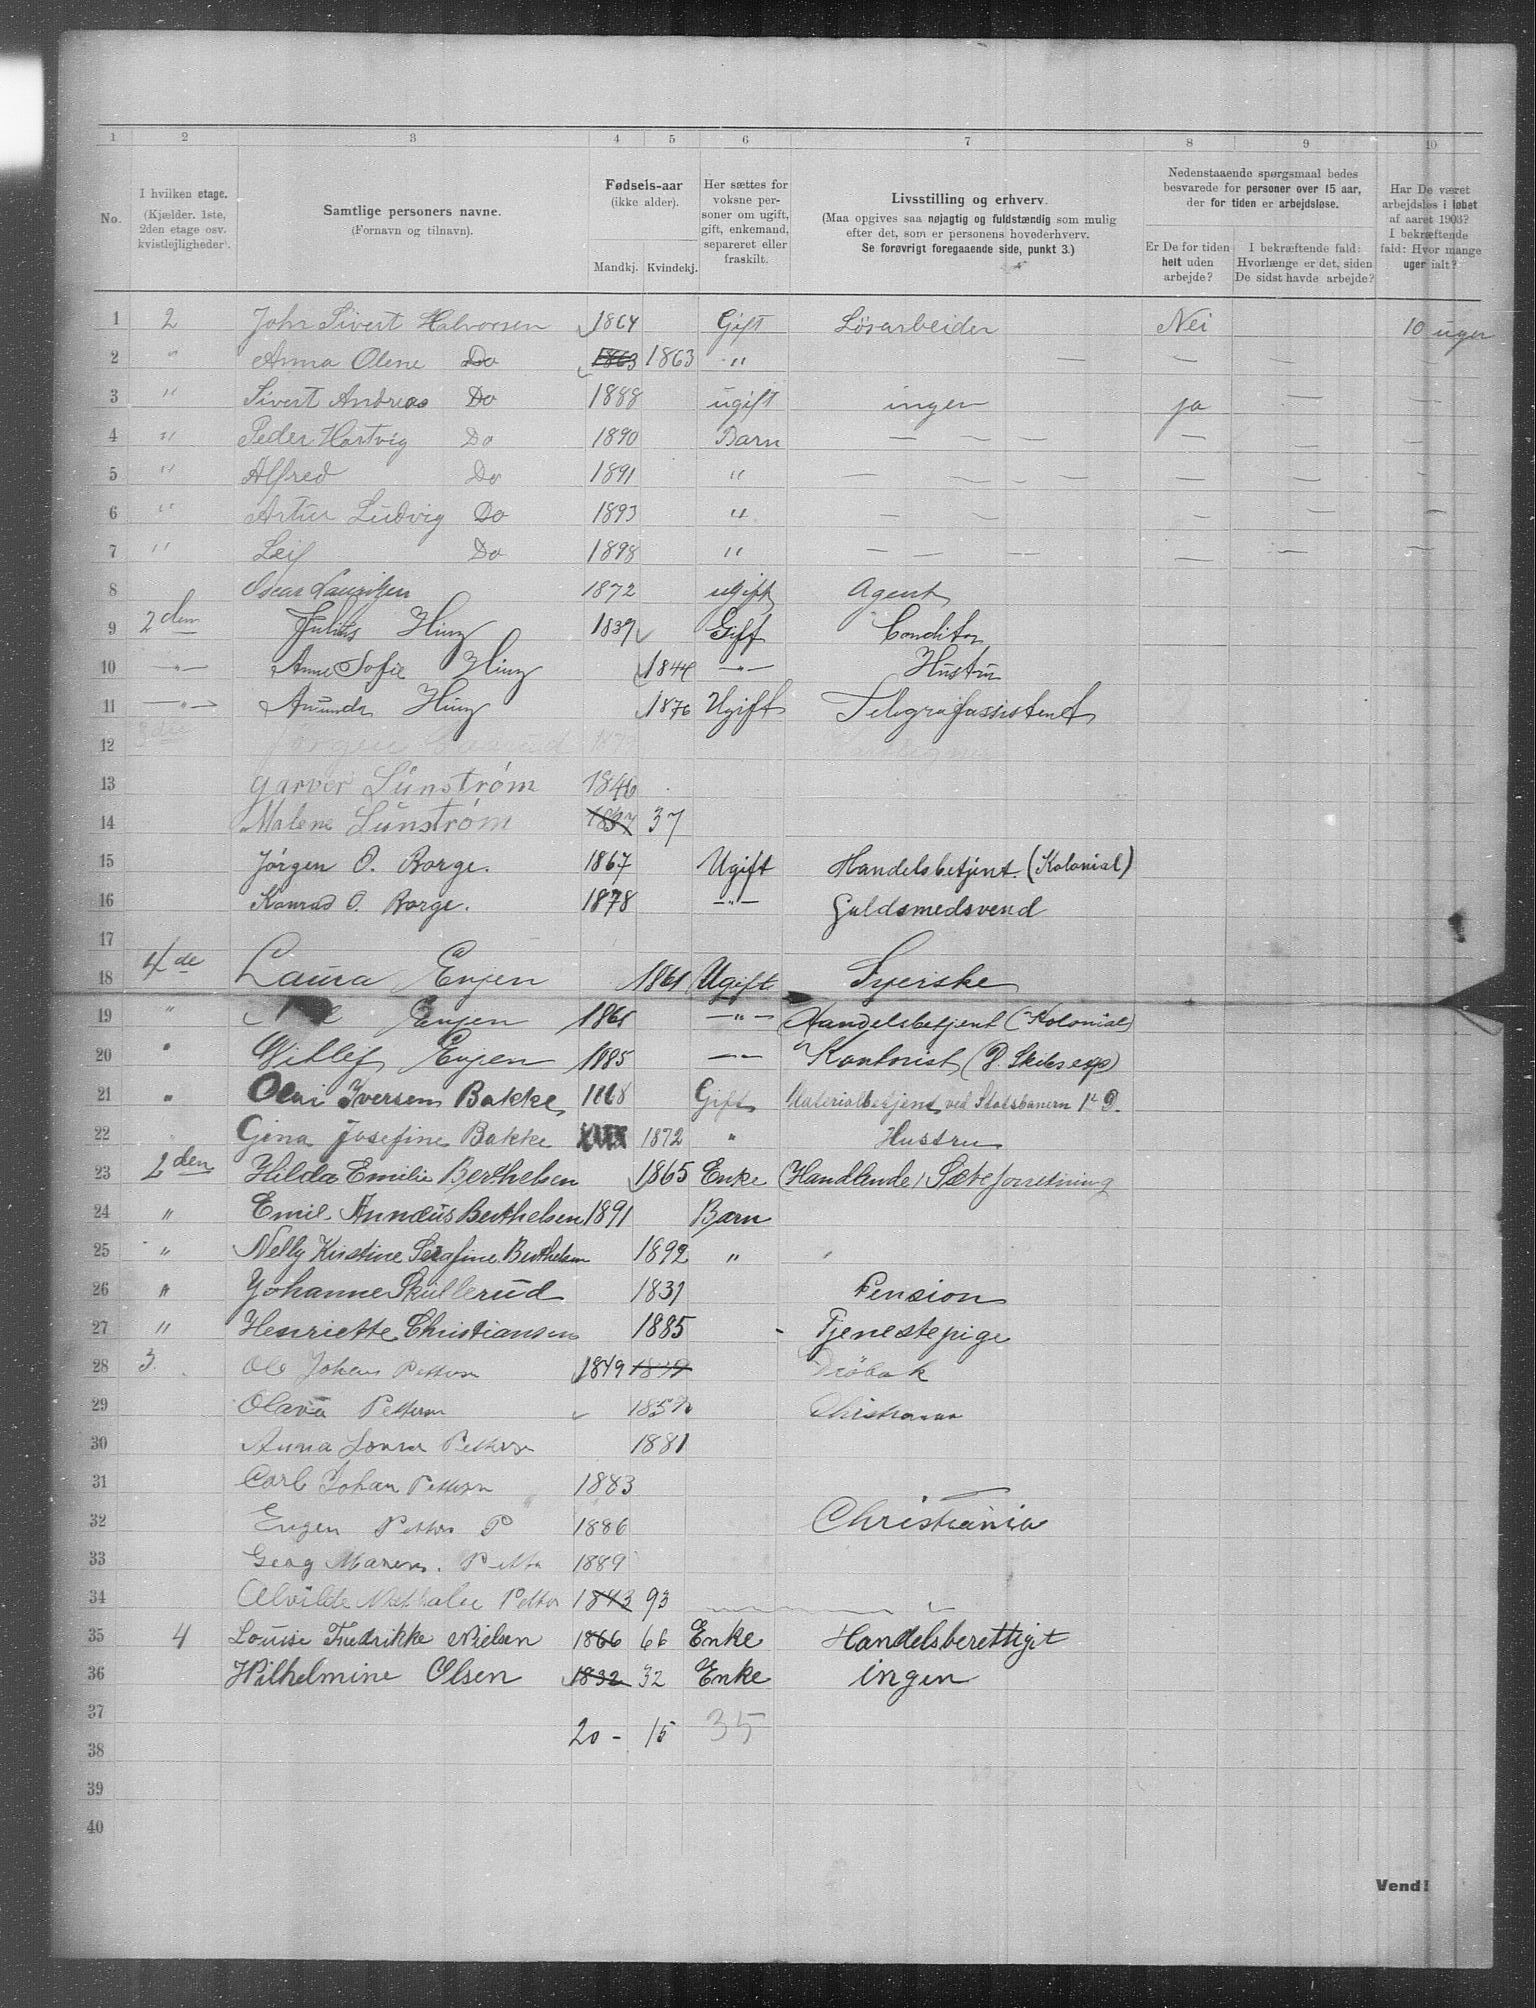 1 2 3 4 5 6 7 8 9 10
No.
I hvilken etage. (Kjælder. 1ste, 2den etage osv. kvistlejligheder).
Samtlige personers navne. (Fornavn og tilnavn).
Fødsels-aar (ikke alder). Mandkj. Kvindekj.
Her sættes for voksne personer om ugift, gift, enkemand, separeret eller fraskilt.
Livsstilling og erhverv. (Maa opgives saa nøjagtig og fuldstændig som mulig efter det, som er personens hovederhverv. Se forøvrigt foregaaende side, punkt 3.)
Nedenstaaende spørgsmaal bedes besvarede for personer over 15 aar, der for tiden er arbejdsløse.
Er De for tiden helt uden arbejde?
I bekræftende fald: Hvorlænge er det, siden De sidst havde arbejde?
Har De været arbejdsløs i løbet af aaret 1903? I bekræftende fald: Hvor mange uger ialt?
1 2 John Sivert Halvorsen 1864 Gift Løsarbeider Nei 10 uger
2 " Anna Olene Do 1863 1863 " — — —
3 " Sivert Andreas Do 1888 ugift ingen ja — —
4 " Peder Hartvig Do 1890 Barn — — — — — — —
5 " Alfred Do 1891 " — — — — — — —
6 " Artur Ludvig Do 1893 " — — — — — —
7 " Leif Do 1898 " — — — — — —
8 Oscar Lauritzen 1872 ugift Agent
9 2den Julius Hinz 1839 Gift Conditor
10 —"— Anne Sofie Hinz 1844 —"— Hustru
11 —"— Amunda Hinz 1876 Ugift Telegrafassistent
12 Jørgen
13 Garver Lünstrøm 1846
14 Malene Lünstrøm 1837 37
15 Jørgen O. Borge. 1867 Ugift Handelsbetjent. (Kolonial)
16 Konrad O. Borge. 1878 —"— Guldsmedsvend
17
18 4de Laura Engen 1861 Ugift Syerske
19 " Engen 1865 —"— Handelsbetjent (Kolonial)
20 " Engen 1885 —"— Kontorist (D. Skibsexp)
21 " Olai Iversen Bakke 1868 Gift Materialbetjent ved Statsbanern 1ste D.
22 Gina Josefine Bakke 1872 " Hustru
23 2den Hilda Emilie Berthelsen 1865 Enke (Handlende) Sæbeforretning
24 " Emil Annæus Berthelsen 1891 Barn
25 " Nelly Kirstine Serafine Berthelsen 1892 "
26 " Johanne Skullerud 1831 Pension
27 " Henriette Christiansen 1885 - Tjenestepige
28 3. Ole Johan Petterson 1849 Drøbak
29 Olava Petterson 1857 Christiania
30 Anna Petterson 1881
31 Carl Johan Petterson 1883
32 Eugen Petter P 1886 Christiania
33 Georg 1889
34 Alvilde Nathalie Petter 1893 93
35 4 Louise Fredrikke Nielsen 1866 66 Enke Handelsberettiget
36 Wilhelmine Olsen 1832 32 Enke ingen
37 20 - 15 35
38
39
40
Vend!